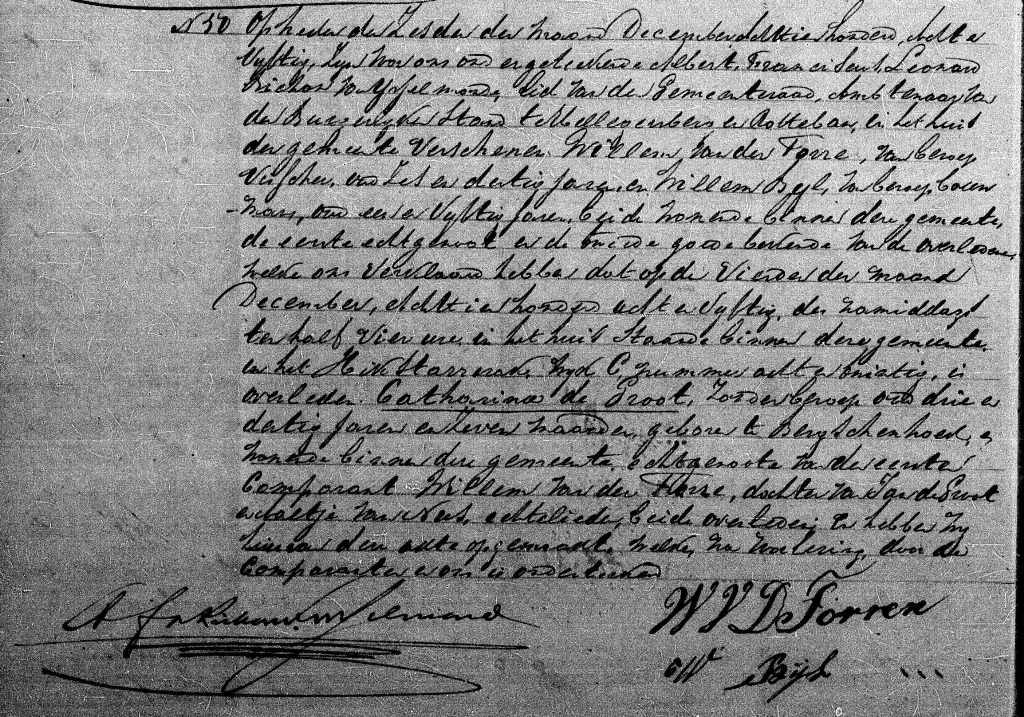 N 50 Op heden den Zesden der maand December Achttien honderd, Acht en
Vyftig, Zyn voor ons ondergeteekende Albert, Franciscus, Leonard
van Ysselmonde, Lid van den Gemeenteraad, Ambtenaar van
den Burgerlyken Stand te Hillegersberg en Rotteban, in het huis
der gemeente Verschenen Willem van der Torre, van beroep
Visscher, oud Zes en dertig Jaren, en Willem Byl, van beroep bouw
man, oud een en Vyftig Jaren, beide wonende binnen deze gemeente,
de eerste echtgenoot en de tweede goede bekende van de overledene,
welke ons Verklaard hebben dat op den Vierden der maand
December, Achttien honderd acht en Vyftig, des namiddags
ten half Vier ure, in het huis Staande binnen deze gemeente
in het Wyk C nummer acht en is
overleden Catharina de Groot, Zonder beroep oud drie en
dertig Jaren en Zeven maanden, geboren te Bergschenhoek, en
wonende binnen deze gemeente, echtgenoote van den eersten
Comparant Willem van der Torre, dochter van Jan de Groot
en van echtelieden, beide overleden En hebben wy
hiervan deze acte opgemaakt, welke, na voorlezing, door de
Comparanten en ons is onderteekend
W V D Torren
W Bijl